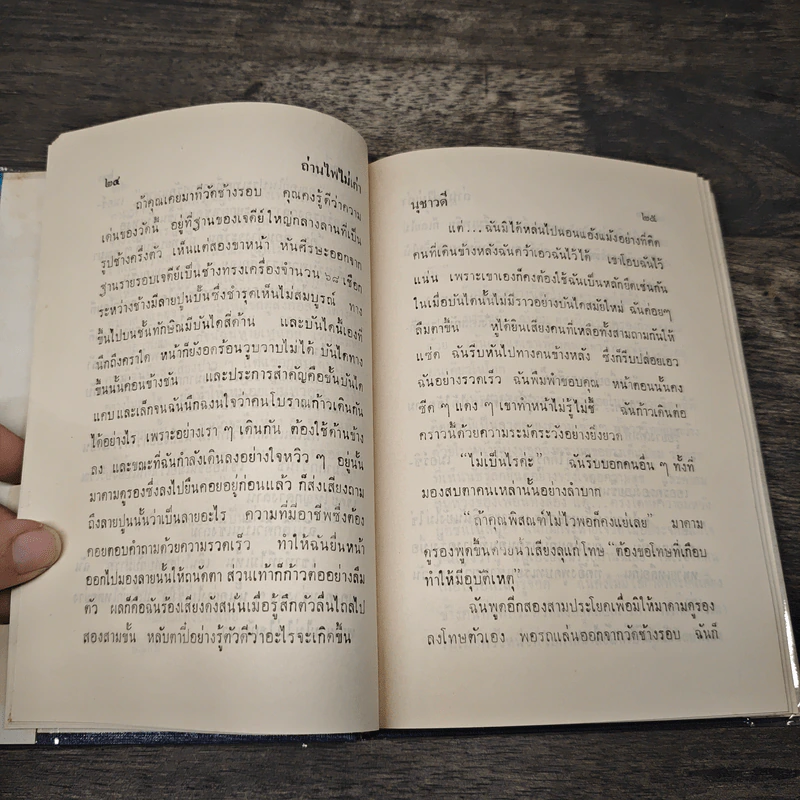 ๒๔ ถ่านไฟไม่เก่า
ถ้าคุณเคยมาที่วัดช้างรอบ คุณคงรู้ดีว่าความ
เด่นของวัดนี้ อยู่ที่ฐานของเจดีย์ใหญ่กลางลานที่เป็น
รูปช้างครึ่งตัว เห็นแต่สองขาหน้า หันศีรษะออกจาก
ฐานรายรอบเจดีย์เป็นช้างทรงเครื่องจำนวน ๖๘ เชือก
ระหว่างช้างมีลายปูนปั้นซึ่งชำรุดเห็นไม่สมบูรณ์ ทาง
ขึ้นไปบนชั้นทักษิณมีบันไดสี่ด้าน และบันไดนี้เองที่
นึกถึงคราใด หน้าก็ยังอดร้อนวูบวาบไม่ได้ บันไดทาง
ขึ้นนั้นค่อนข้างชัน และประการสำคัญคือขั้นบันได
แคบและเล็กจนฉันนึกฉงนใจว่าคนโบราณก้าวเดินกัน
ได้อย่างไร เพราะอย่างเรา ๆ เดินกัน ต้องใช้ด้านข้าง
ลง และขณะที่ฉันกำลังเดินลงอย่างใจหวิว ๆ อยู่นั้น
มาดามดูรองซึ่งลงไปยืนคอยอยู่ก่อนแล้ว ก็ส่งเสียงถาม
ถึงลายปูนนั้นว่าเป็นลายอะไร ความที่มีอาชีพซึ่งต้อง
คอยตอบคำถามด้วยความรวดเร็ว ทำให้ฉันยื่นหน้า
ออกไปมองลายนั้นให้ถนัดตา ส่วนเท้าก็ก้าวต่ออย่างลืม
ตัว ผลก็คือฉันร้องเสียงดังสนั่นเมื่อรู้สึกตัวลื่นไถลไป
สองสามขั้น หลับตาปี๋อย่างรู้ตัวดีว่าอะไรจะเกิดขึ้น
นุชาวดี ๒๕
แต่ ... ฉันมิได้หล่นไปนอนแอ้งแม้งอย่างที่คิด
คนที่เดินข้างหลังฉันคว้าเอวฉันไว้ได้ เขาโอบฉันไว้
แน่น เพราะเขาเองก็คงต้องใช้ฉันเป็นหลักยึดเช่นกัน
ในเมื่อบันไดนั้นไม่มีราวอย่างบันไดสมัยใหม่ ฉันค่อยๆ
ลืมตาขึ้น หูได้ยินเสียงคนที่เหลือทั้งสามถามกันให้
แซ่ด ฉันรีบหันไปทางคนข้างหลัง ซึ่งก็รีบปล่อยเอว
ฉันอย่างรวดเร็ว ฉันพึมพำขอบคุณ หน้าตอนนั้นคง
ซีด ๆ แดง ๆ เขาทำหน้าไม่รู้ไม่ชี้ ฉันก้าวเดินต่อ
คราวนี้ด้วยความระมัดระวังอย่างยิ่งยวด
“ไม่เป็นไรค่ะ” ฉันรีบบอกคนอื่น ๆ ทั้งที่
มองสบตาคนเหล่านั้นอย่างลำบาก
“ถ้าคุณพิสณฑ์ไม่ไวพอก็คงแย่เลย” มาดาม
ดูรองพูดขึ้นด้วยน้ำเสียงลุแก่โทษ “ต้องขอโทษที่เกือบ
ทำให้มีอุบัติเหตุ”
ฉันพูดอีกสองสามประโยคเพื่อมิให้มาดามดูรอง
ลงโทษตัวเอง พอรถแล่นออกจากวัดช้างรอบ ฉันก็